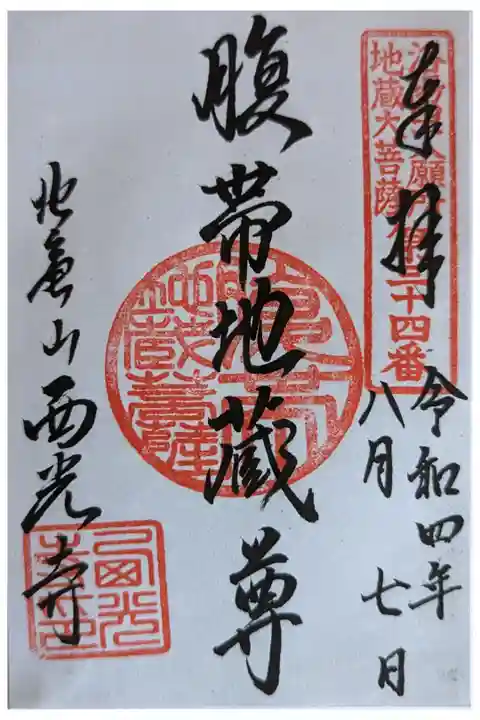 奉拝
願
十四番
地蔵大菩薩
令和四年
八月七日
腹帯地蔵尊
地蔵菩薩
北亀山西光寺